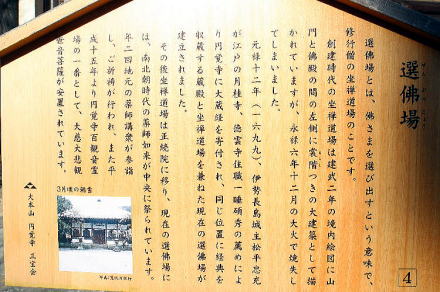 選佛場
選佛場とは、佛さまを選び出すという意味で、
修行僧の坐禅道場のことです。
創建時代の坐禅道場は建武二年の境内絵図に山
門と佛殿の間の左側に裳階つきの大建築として描
かれていますが、永禄六年十二月の大火で焼失し
てしまいました。
元禄十二年(一六九九)、伊勢長島城主松平忠充
が江戸の月桂寺、徳雲寺住職一睡碩秀の薦めによ
り円覚寺に大蔵経を寄付され、同じ位置に経典を
収蔵する蔵殿と坐禅道場を兼ねた現在の選佛場が
建立されました。
その後坐禅道場は正続院に移り、現在の選佛場に
は、南北朝時代の薬師如来が中央に祭られています。
年二回地元の薬師講衆が参詣
し、ご祈祷が行われ、また平
成十五年より円覚寺百観音霊
場の一番として、大慈大悲観
世音菩薩が安置されています。
大本山 円覚寺 三宝会
4